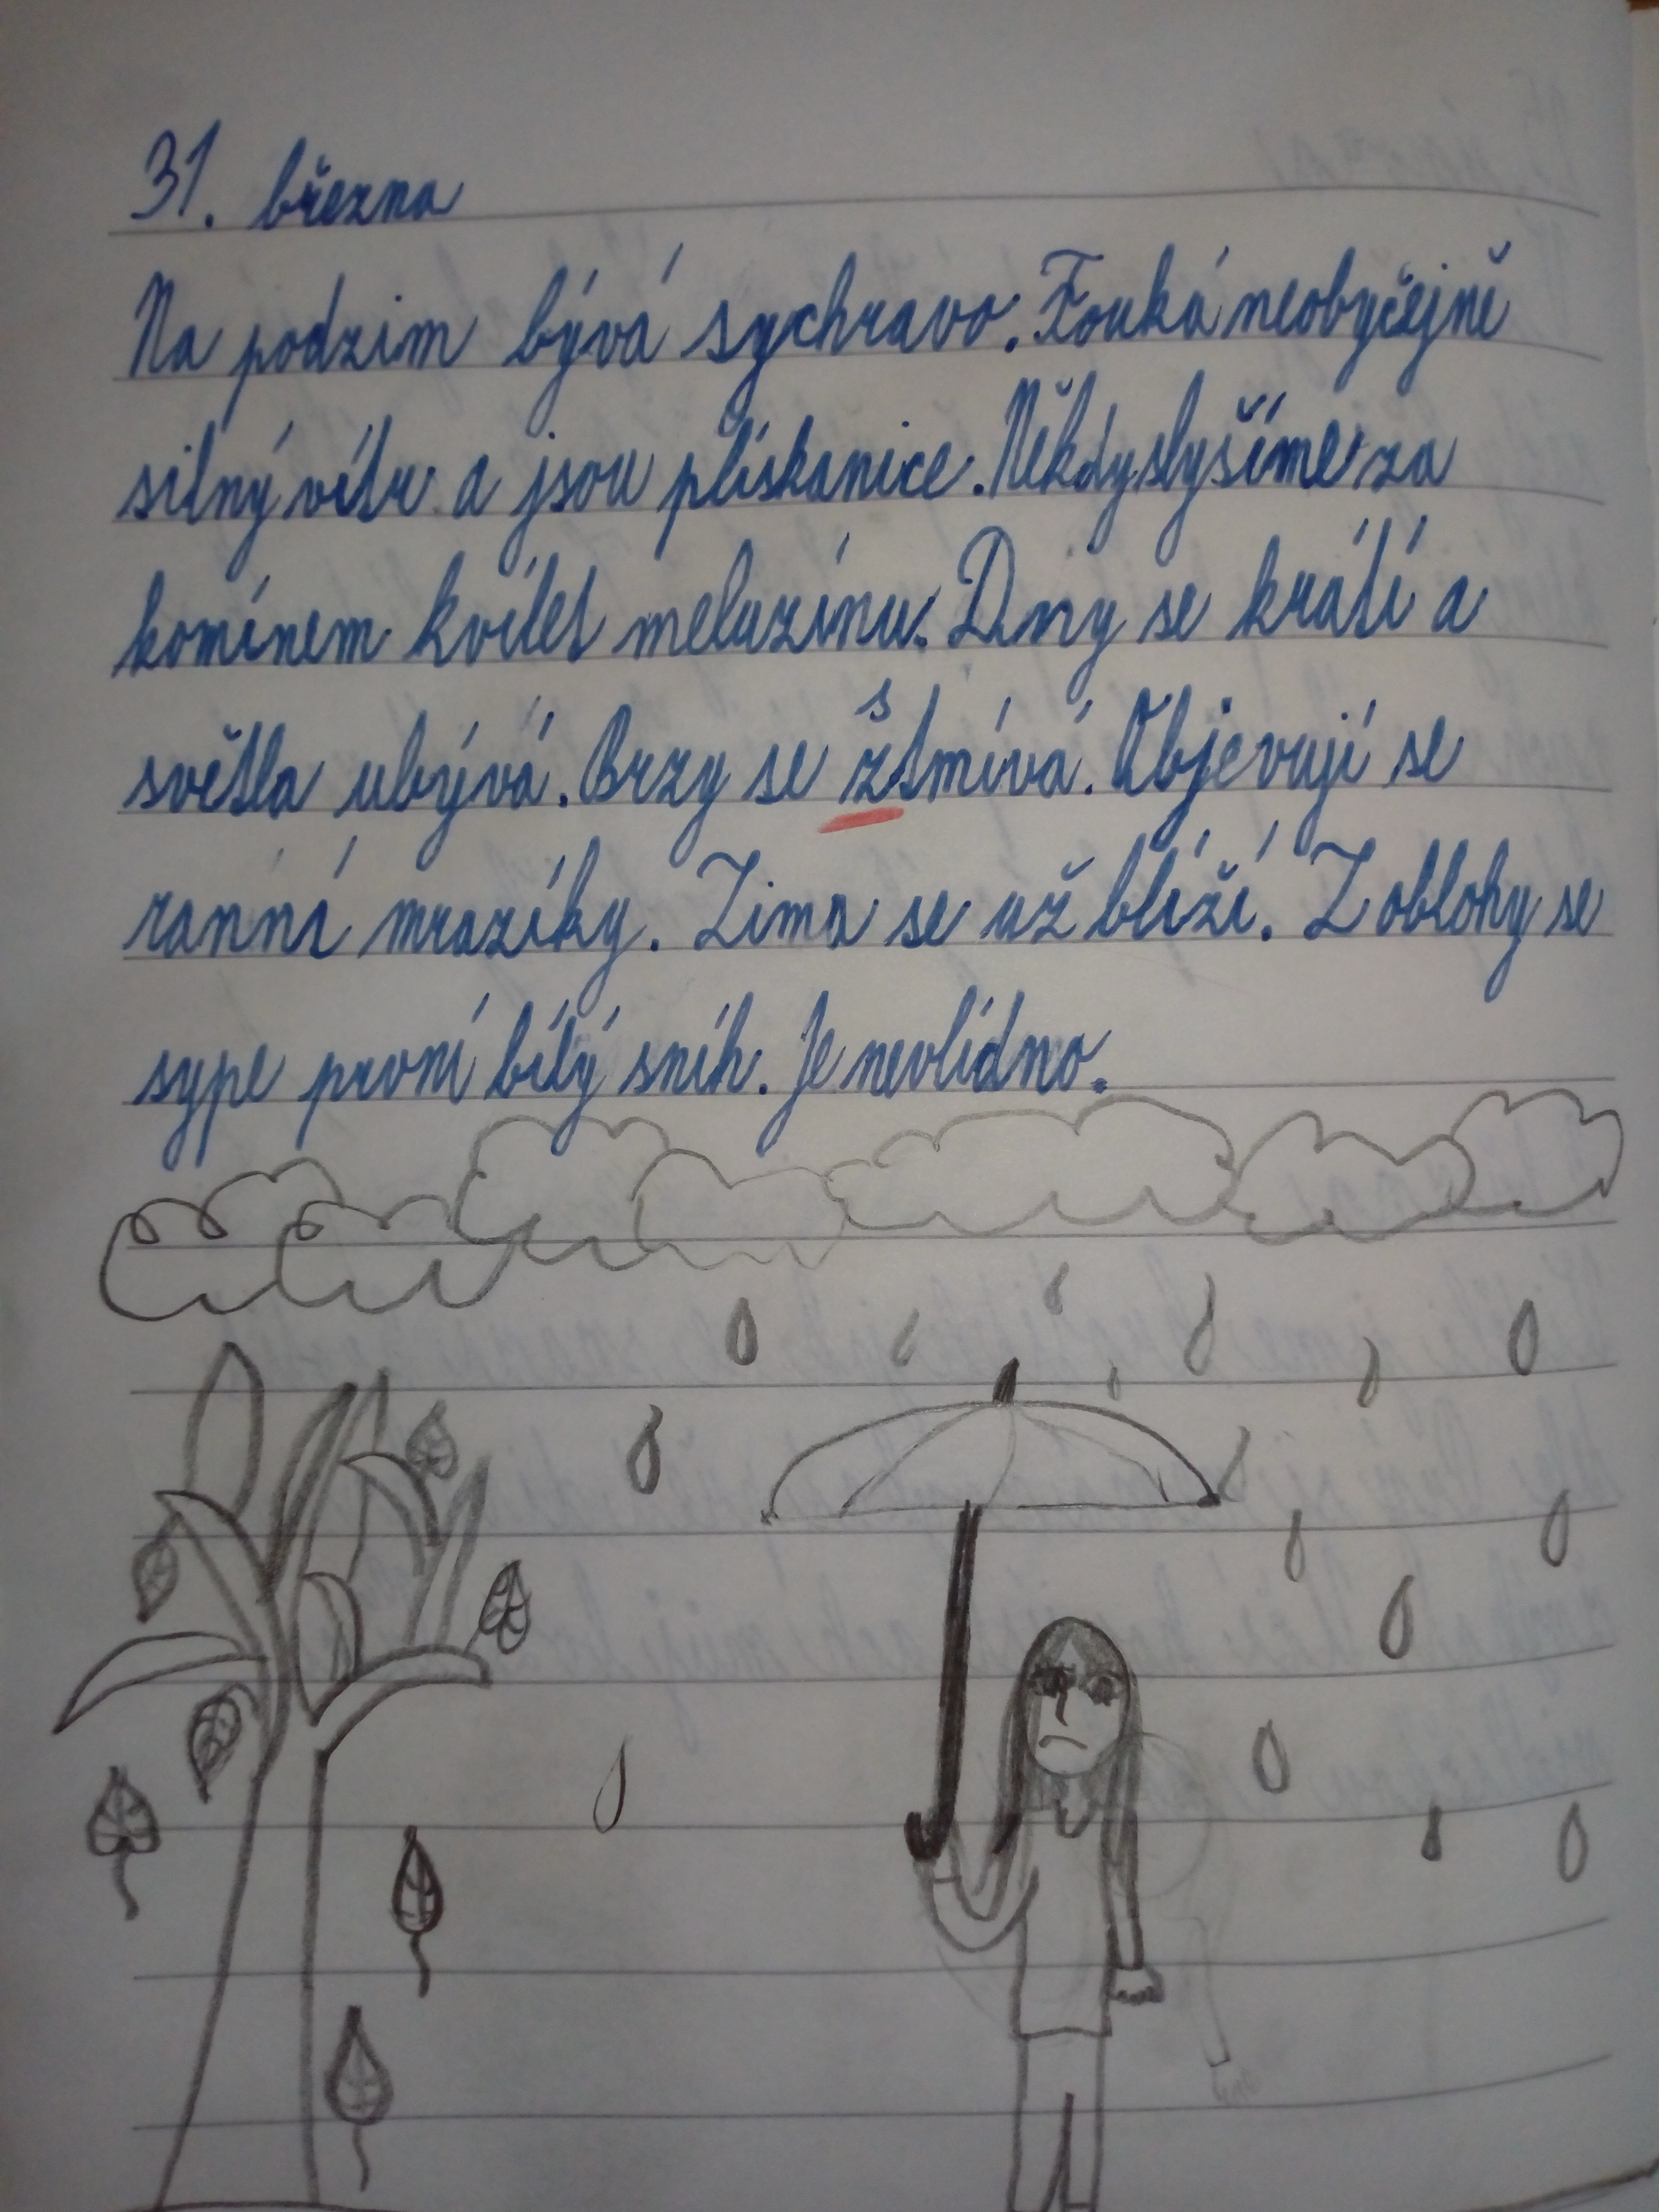 31. března
Na podzim bývá sychravo. Fouká neobyčejně
silný vítr a jsou plískanice. Někdy slyšíme za
komínem kvílet meluzínu. Dny se krátí a
s
světla ubývá. Brzy se ztmívá. Objevují se
ranní mrazíky. Zima se už blíží. Z oblohy se
sype první bílý sníh. Je nevlídno.